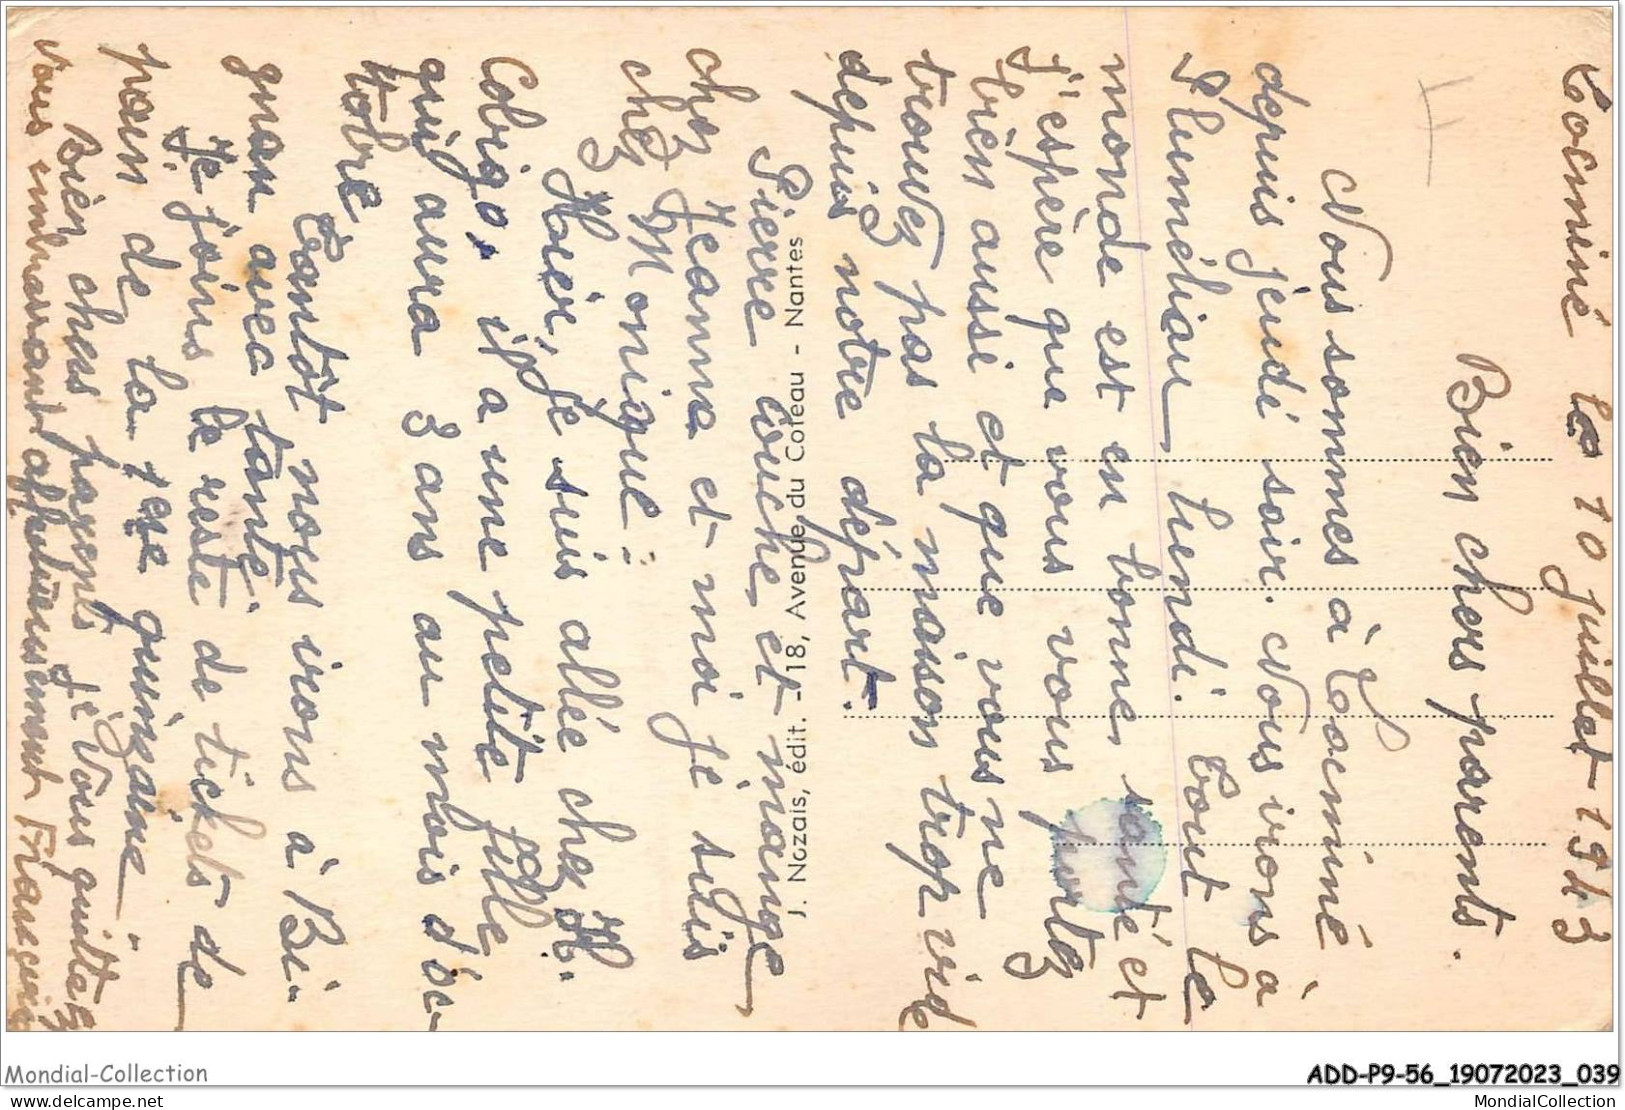 Locminé le 10 juillet 1943
Bien chers parents.
Nous sommes à Locminé
depuis jeudi soir. Nous irons à
Pluméliau lundi. Tout le
monde est en bonne santé et
j'espère que vous vous portez
bien aussi et que vous ne
trouvez pas la maison trop vide
depuis notre départ.
Pierre couche et mange
chez Jeanne et moi je suis
chez Monique.
Hier, je suis allée chez H.
Cobigo, il a une petite fille
qui aura 3 ans au mois d'oc-
tobre
Tantôt nous irons à Bi-
gnan avec tante.
Je joins le reste de tickets de
pain de la 1ère quinzaine.
Bien chers parents je vous quitte
vous embrassant affectueusement
J. Nozais, édit. - 18, Avenue du Coteau - Nantes
Mondial-Collection
ADD-P9-56_19072023_039
delcampe.net
MondialCollection